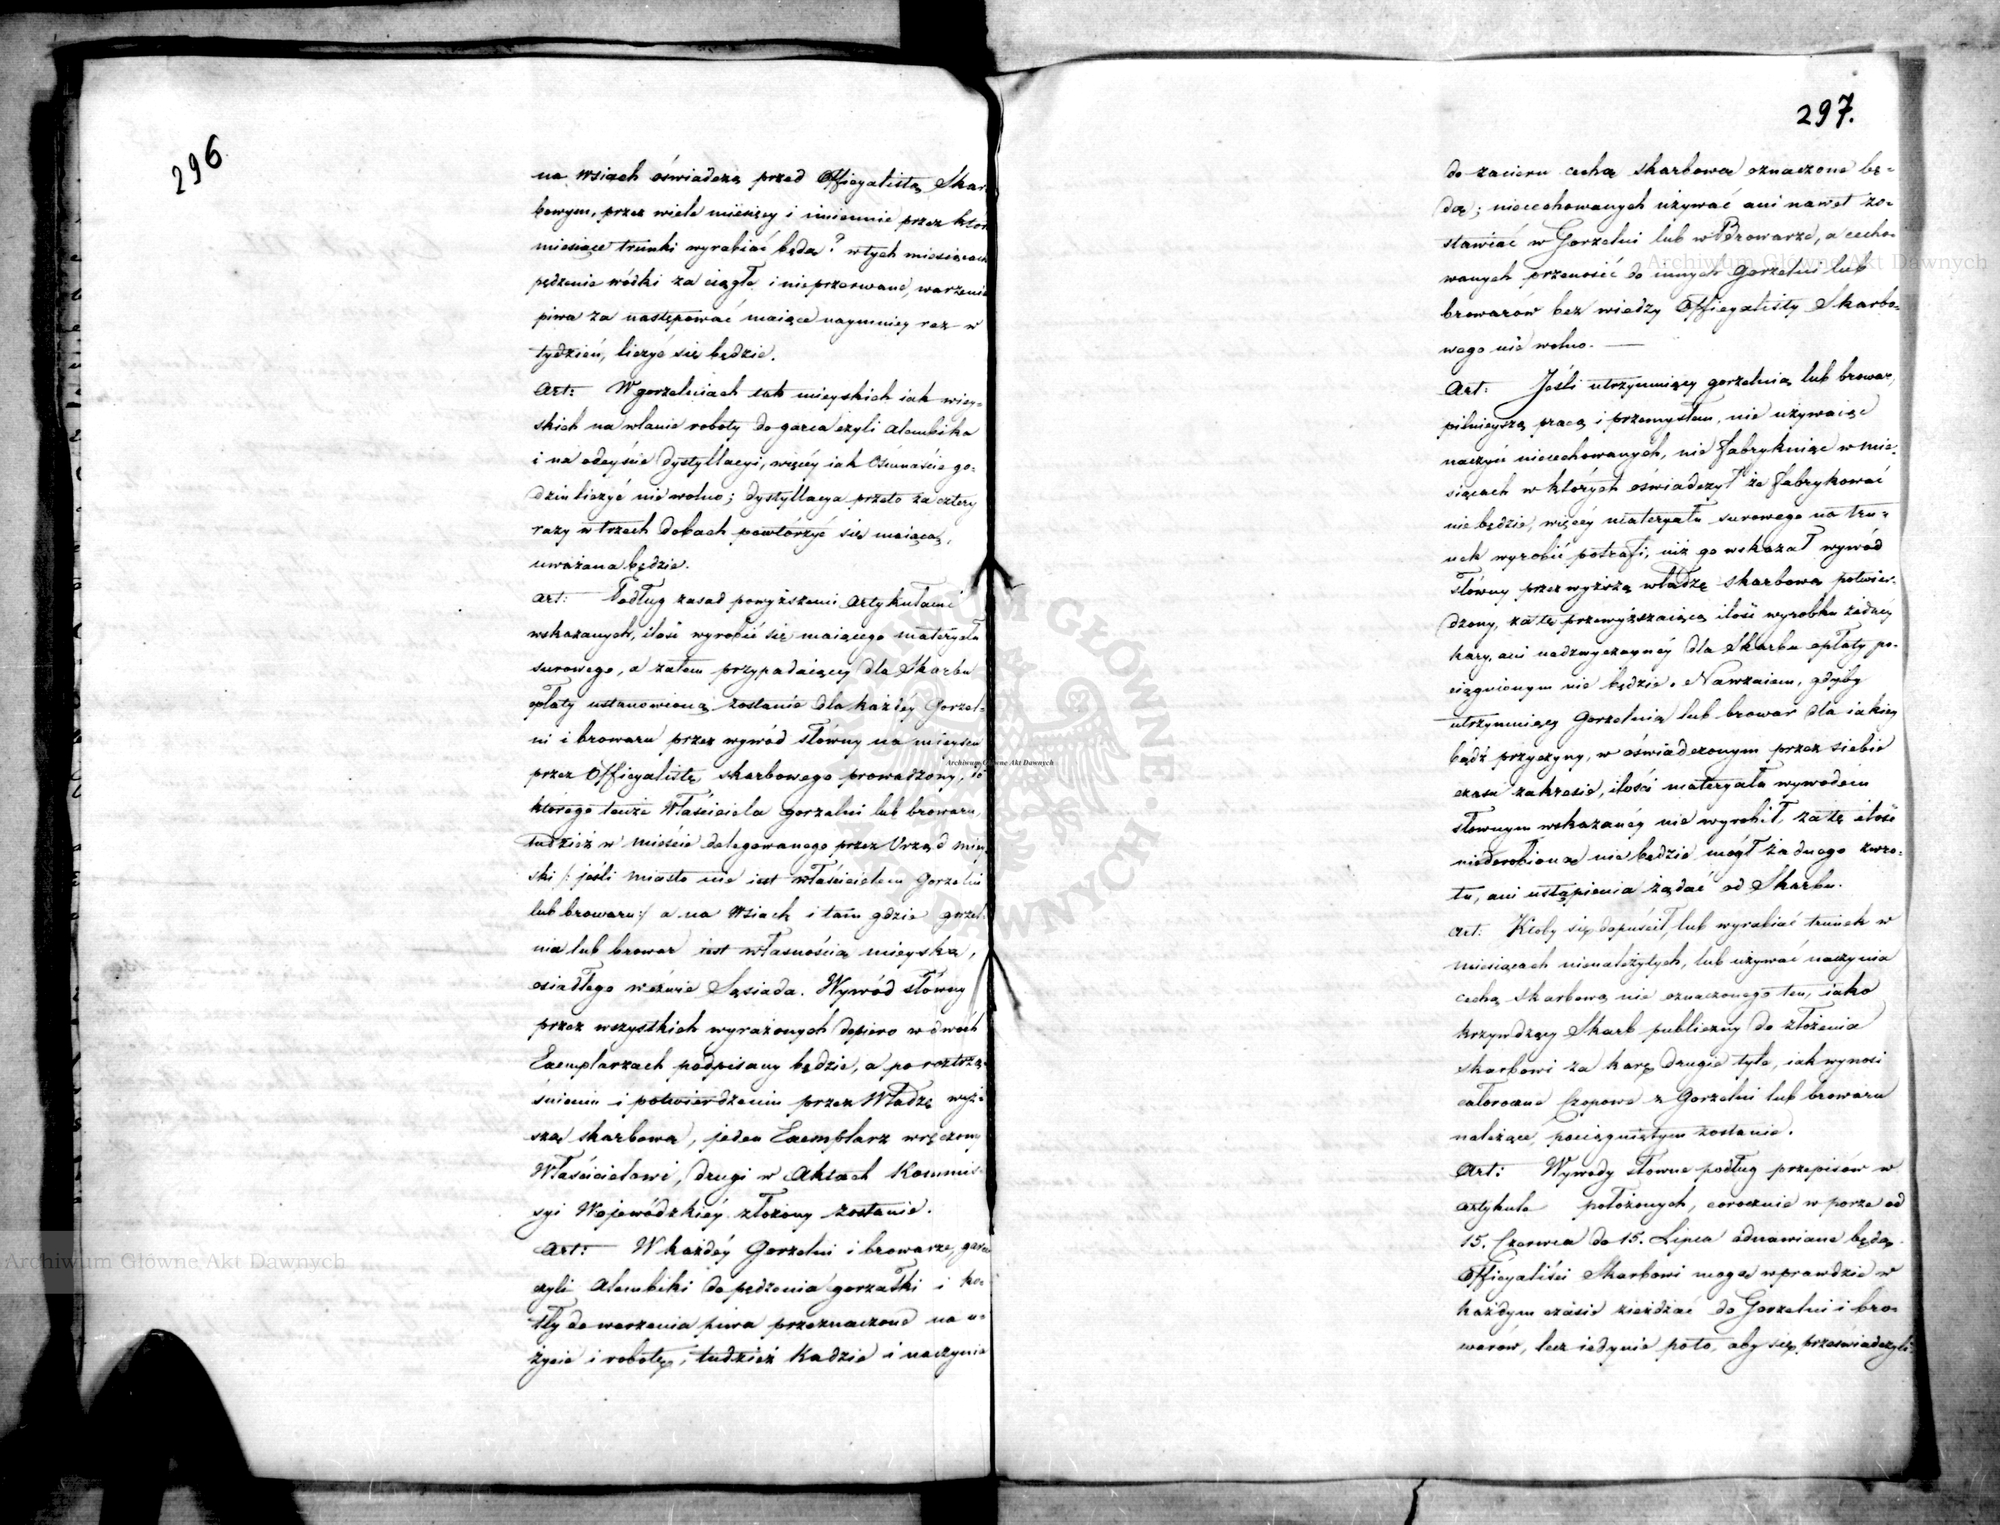 296
na wsiach oświadczą przed Officyalistą Skar-
bowym, przez wiele miesięcy i imiennie przez które
miesiące trunki wyrabiać będą? w tych miesiącach
pędzenie wódki za ciągłe i nieprzerwane, warzenie
piwa za następować maiące naymniey raz w
tydzień, liczyć się będzie.
Art: W gorzelniach tak mieyskich iak wiey-
skich na wlanie roboty do garca czyli alembika
i na odeyście dystyllacyi, więcéy iak Ośmnaście go-
dzin liczyć nie wolno; dystyllacya przeto za cztery
razy w trzech dobach powtórzyć się maiącą,
uważana będzie.
Art: Podług zasad powyższemi artykułami
wskazanych, ilość wyrobić się maiącego materyału
surowego, a zatem przypadaiącey dla Skarbu
opłaty ustanowioną zostanie dla każdéy Gorzel-
ni i browaru przez wywód słówny na mieyscu
przez Officyalistę skarbowego prowadzony, do
którego tenże Właściciela gorzelni lub browaru,
tudzież w mieście delegowanego przez Urząd miey-
ski /: jeśli miasto nie iest właścicielem Gorzelni
lub browaru:/ a na wsiach i tam gdzie gorzel-
nia lub browar iest własnością mieyską,
osiadłego wezwie Sąsiada. Wywód słówny
przez wszystkich wyrażonych dopiero w dwóch
Exemplarzach podpisany będzie, a po roztrzą-
śnieniu i potwierdzeniu przez Władzę wyż-
szą skarbową, jeden Exemplarz wręczony
Właścicielowi, drugi w Aktach Kommis-
syi Wojewódzkiéy złożony zostanie.
Art: W każdéy Gorzelni i browarze, garce
czyli alembiki do pędzenia gorzałki i ko-
tły do warzenia piwa przeznaczone na u-
życie i robotę, tudzież Kadzie i naczynia
297.
do zacieru cechą skarbową oznaczone bę-
dą; niecechowanych używać ani nawet zo-
stawiać w Gorzelni lub w Browarze, a cecho-
wanych przenosić do innych Gorzelni lub
browarów bez wiedzy Officyalisty Skarbo-
wego nie wolno.
Art: Jeśli utrzymuiący gorzelnią lub browar,
pilnieyszą pracą i przemysłem, nie używaiąc
naczyń niecechowanych, nie fabrykuiąc w mie-
siącach w których oświadczył że fabrykować
nie będzie, więcéy materyału surowego na tru-
nek wyrobić potrafi, niż go wskazał wywód
słówny przez wyższą władzę skarbową potwier-
dzony, za tę przewyższaiącą ilość wyrobku żadnéy
kary, ani nadzwyczaynéy dla Skarbu opłaty po-
ciągnionym nie będzie. Nawzaiem, gdyby
utrzymuiący Gorzelnią lub browar dla iakiey
bądź przyczyny, w oświadczonym przez siebie
czasu zakresie, ilości materyału wywodem
słownym wskazanéy nie wyrobił, za tę ilość
niedorobioną nie będzie mógł żadnego zwro-
tu, ani ustąpienia żądać od Skarbu.
Art: Ktoby się dopuścił, lub wyrabiać trunek w
miesiącach nienależytych, lub używać naczynia
cechą skarbową nie oznaczonego ten, iako
krzywdzący Skarb publiczny do złożenia
skarbowi za karę drugie tyle, iak wynosi
całoroczne Czopowe z Gorzelni lub browaru
należące, pociągniętym zostanie.
Art: Wywody słowne podług przepisów w
artykule położonych, corocznie w porze od
15. Czerwca do 15. Lipca odnawiane będą.
Officyaliści Skarbowi mogą wprawdzie w
każdym czasie zieżdżać do Gorzelni i bro-
warów, lecz iedynie poto, aby się przeświadczyli
Archiwum Główne Akt Dawnych
Archiwum Główne Akt Dawnych
Archiwum Główne Akt Dawnych
ARCHIWUM GŁÓWNE AKT DAWNYCH